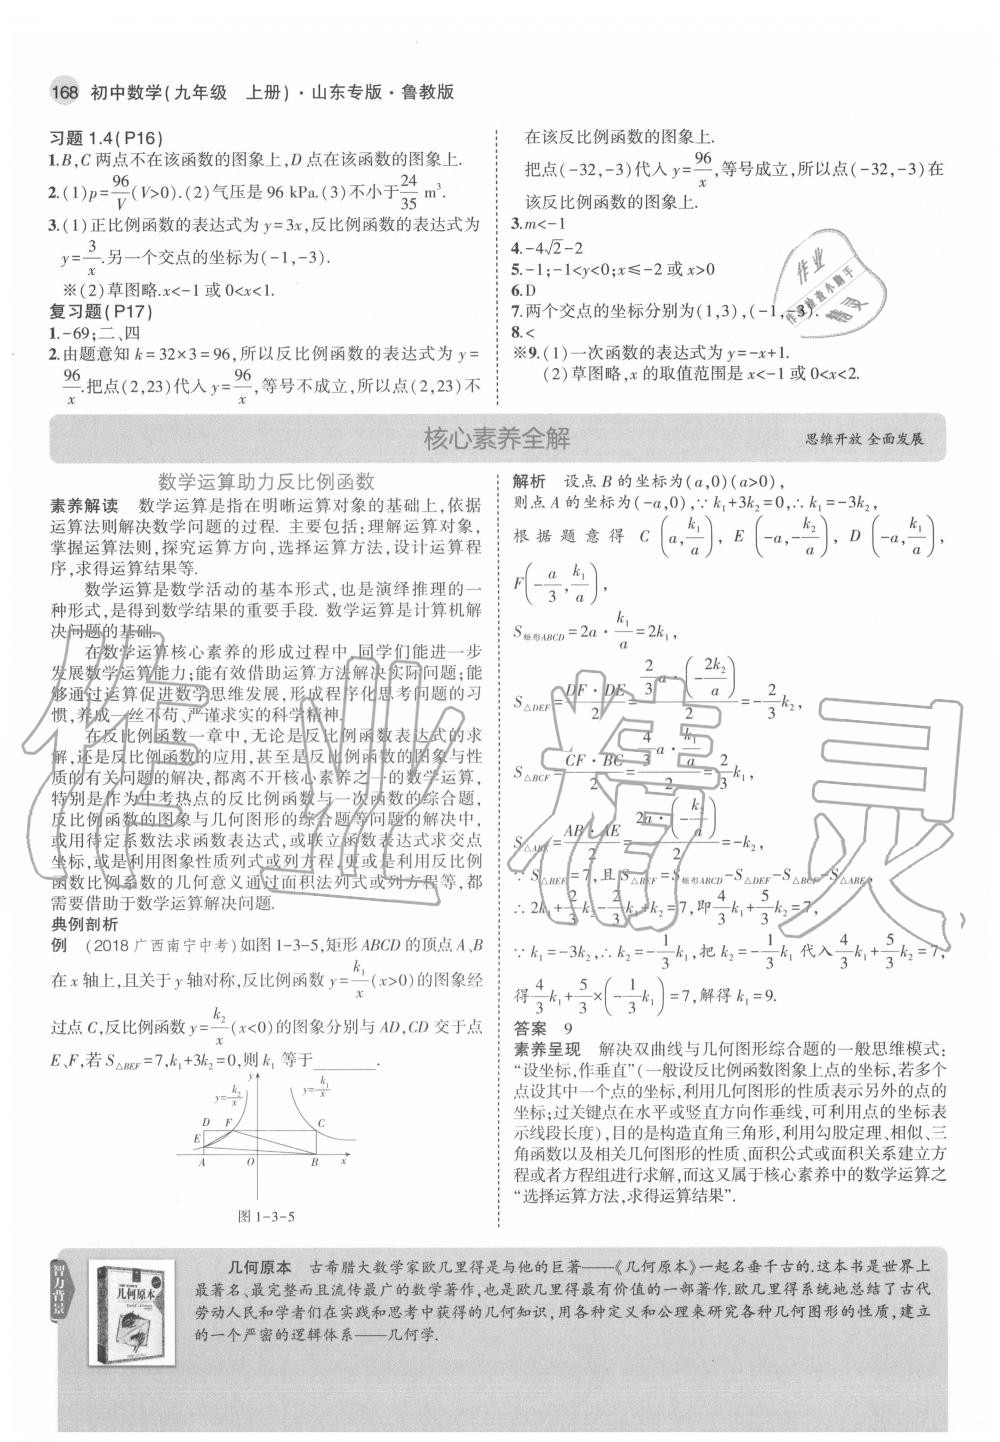 168 初中数学(九年级 上册)·山东专版·鲁教版
习题 1.4(P16)
1.B,C 两点不在该函数的图象上,D 点在该函数的图象上.
2.(1)p=96/V(V>0).(2)气压是 96 kPa.(3)不小于24/35 m³.
3.(1)正比例函数的表达式为 y=3x,反比例函数的表达式为
y=3/x.另一个交点的坐标为(-1,-3).
※(2)草图略.x<-1 或 0<x<1.
复习题(P17)
1.-69;二、四
2.由题意知 k=32×3=96,所以反比例函数的表达式为 y=
96/x.把点(2,23)代入 y=96/x,等号不成立,所以点(2,23)不
在该反比例函数的图象上.
把点(-32,-3)代入 y=96/x,等号成立,所以点(-32,-3)在
该反比例函数的图象上.
3.m<-1
4.-4√2-2
5.-1;-1<y<0;x≤-2 或 x>0
6.D
7.两个交点的坐标分别为(1,3),(-1,-3).
8.<
※9.(1)一次函数的表达式为 y=-x+1.
(2)草图略,x 的取值范围是 x<-1 或 0<x<2.
核心素养全解
思维开放 全面发展
数学运算助力反比例函数
素养解读 数学运算是指在明晰运算对象的基础上,依据
运算法则解决数学问题的过程. 主要包括:理解运算对象,
掌握运算法则,探究运算方向,选择运算方法,设计运算程
序,求得运算结果等.
数学运算是数学活动的基本形式,也是演绎推理的一
种形式,是得到数学结果的重要手段. 数学运算是计算机解
决问题的基础.
在数学运算核心素养的形成过程中,同学们能进一步
发展数学运算能力;能有效借助运算方法解决实际问题;能
够通过运算促进数学思维发展,形成程序化思考问题的习
惯,养成一丝不苟、严谨求实的科学精神.
在反比例函数一章中,无论是反比例函数表达式的求
解,还是反比例函数的应用,甚至是反比例函数的图象与性
质的有关问题的解决,都离不开核心素养之一的数学运算,
特别是作为中考热点的反比例函数与一次函数的综合题,
反比例函数的图象与几何图形的综合题等问题的解决中,
或用待定系数法求函数表达式,或联立函数表达式求交点
坐标,或是利用图象性质列式或列方程,更或是利用反比例
函数比例系数的几何意义通过面积法列式或列方程等,都
需要借助于数学运算解决问题.
典例剖析
例 (2018 广西南宁中考)如图 1-3-5,矩形 ABCD 的顶点 A、B
在 x 轴上,且关于 y 轴对称,反比例函数 y=k₁/x(x>0)的图象经
过点 C,反比例函数 y=k₂/x(x<0)的图象分别与 AD,CD 交于点
E、F,若 S△BEF=7,k₁+3k₂=0,则 k₁ 等于________.
y
y=k₂/x y=k₁/x
D F C
E
A O B x
图 1-3-5
解析 设点 B 的坐标为(a,0)(a>0),
则点 A 的坐标为(-a,0),∵k₁+3k₂=0,∴k₁=-3k₂,
根据题意得 C(a,k₁/a), E(-a,-k₂/a), D(-a,k₁/a),
F(-a/3,k₁/a),
S矩形ABCD=2a·k₁/a=2k₁,
S△DEF=DF·DE/2=(2/3)a·(-2k₂/a)/2=-2/3k₂,
S△BCF=CF·BC/2=(4/3)a·(k₁/a)/2=2/3k₁,
S△ABE=AB·AE/2=2a·(-k₂/a)/2=-k₂,
∵S△BEF=7,且 S△BEF=S矩形ABCD-S△DEF-S△BCF-S△ABE,
∴2k₁+2/3k₂-2/3k₁+k₂=7,即4/3k₁+5/3k₂=7,
∵k₁=-3k₂,∴k₂=-1/3k₁,把 k₂=-1/3k₁ 代入4/3k₁+5/3k₂=7,
得4/3k₁+5/3×(-1/3k₁)=7,解得 k₁=9.
答案 9
素养呈现 解决双曲线与几何图形综合题的一般思维模式:
“设坐标,作垂直”(一般设反比例函数图象上点的坐标,若多个
点设其中一个点的坐标,利用几何图形的性质表示另外的点的
坐标;过关键点在水平或竖直方向作垂线,可利用点的坐标表
示线段长度),目的是构造直角三角形,利用勾股定理、相似、三
角函数以及相关几何图形的性质、面积公式或面积关系建立方
程或者方程组进行求解,而这又属于核心素养中的数学运算之
“选择运算方法,求得运算结果”.
智力背景
几何原本
几何原本 古希腊大数学家欧几里得是与他的巨著——《几何原本》一起名垂千古的,这本书是世界上
最著名、最完整而且流传最广的数学著作,也是欧几里得最有价值的一部著作.欧几里得系统地总结了古代
劳动人民和学者们在实践和思考中获得的几何知识,用各种定义和公理来研究各种几何图形的性质,建立
的一个严密的逻辑体系——几何学.
作业精灵
作业
作业检查小助手
精灵